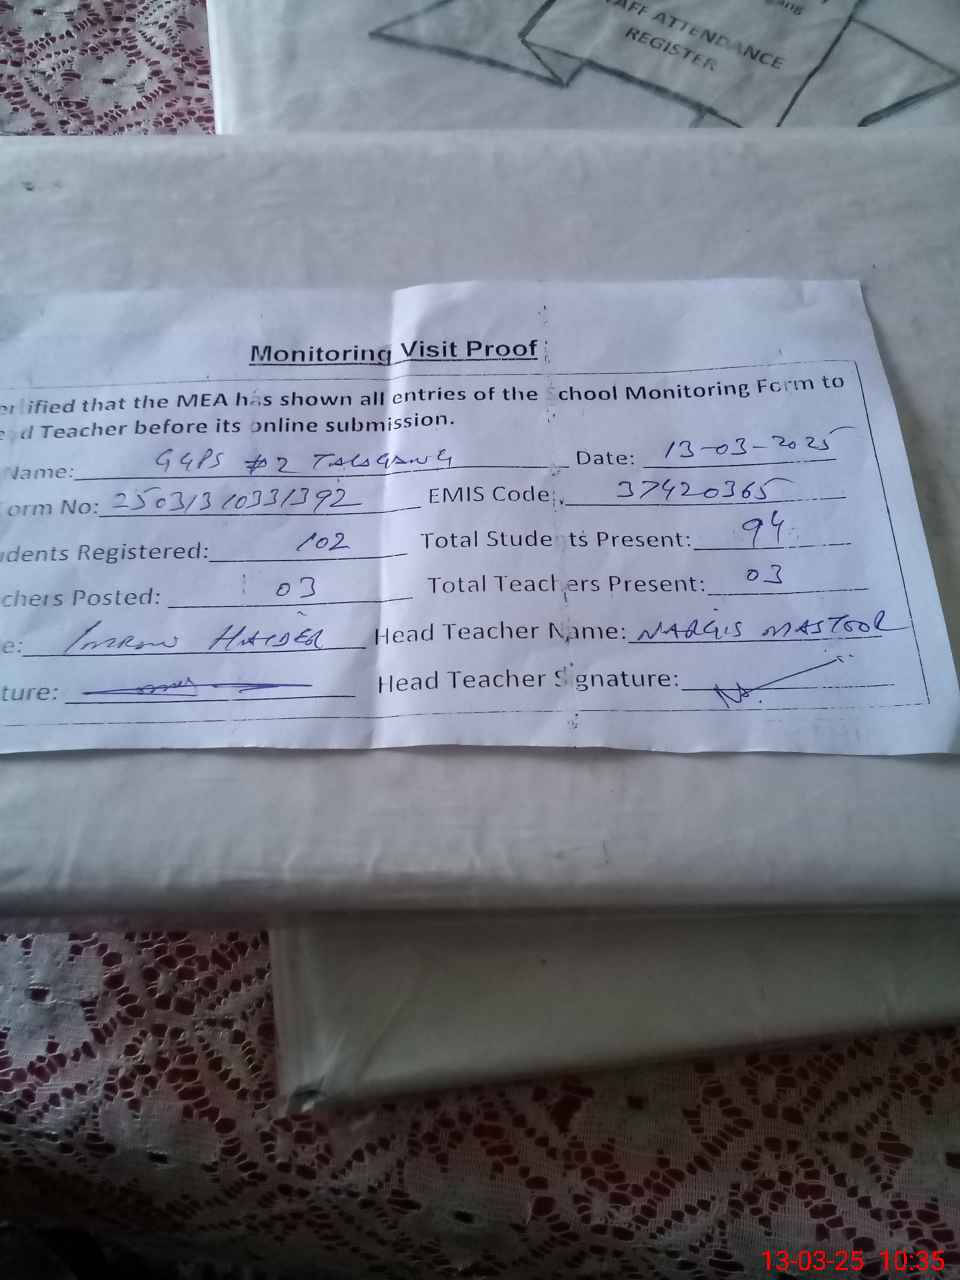 ang
AFF ATTENDANCE
REGISTER
Monitoring Visit Proof
ertified that the MEA has shown all entries of the School Monitoring Form to
ead Teacher before its online submission.
Name: GGPS #2 TALAGANG Date: 13-03-2025
orm No: 25031310331392 EMIS Code: 37420365
udents Registered: 102 Total Students Present: 94
chers Posted: 03 Total Teachers Present: 03
e: IMRAN HAIDER Head Teacher Name: NARGIS MASTOOR
ture: Head Teacher Signature:
13-03-25 10:35